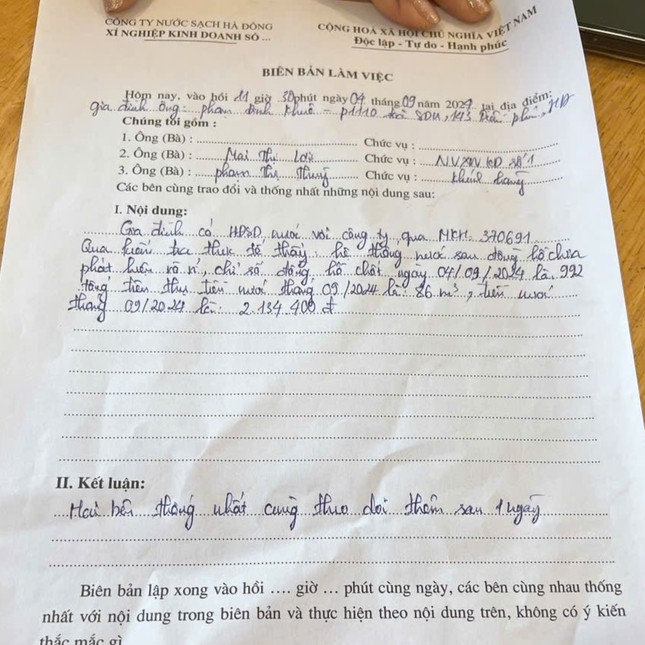 CÔNG TY NƯỚC SẠCH HÀ ĐÔNG
XÍ NGHIỆP KINH DOANH SỐ ...
CỘNG HOÀ XÃ HỘI CHỦ NGHĨA VIỆT NAM
Độc lập - Tự do - Hạnh phúc
BIÊN BẢN LÀM VIỆC
Hôm nay, vào hồi 11 giờ 30 phút ngày 04 tháng 09 năm 2024 tại địa điểm:
gia đình ông: phạm đình khuê - p1110 toà SDU, 143 trần phú, HĐ
Chúng tôi gồm :
1. Ông (Bà) : Chức vụ :
2. Ông (Bà) : Mai Thị Chức vụ : N.V.XN KD số 1
3. Ông (Bà) : phạm Thị Chức vụ : khách hàng
Các bên cùng trao đổi và thống nhất những nội dung sau:
I. Nội dung:
Gia đình có HĐSD nước với công ty, qua MKH: 370691
Qua kiểm tra thực tế thấy: hệ thống nước sau đồng hồ chưa
phát hiện rò rỉ, chỉ số đồng hồ chốt ngày 04/09/2024 là 992
tổng tiêu thụ tiền nước tháng 09/2024 là: 86 m³, tiền nước
tháng 09/2024 là: 2.134.400 đ
II. Kết luận:
Hai bên thống nhất cùng theo dõi thêm sau 1 ngày
Biên bản lập xong vào hồi .... giờ ... phút cùng ngày, các bên cùng nhau thống
nhất với nội dung trong biên bản và thực hiện theo nội dung trên, không có ý kiến
thắc mắc gì